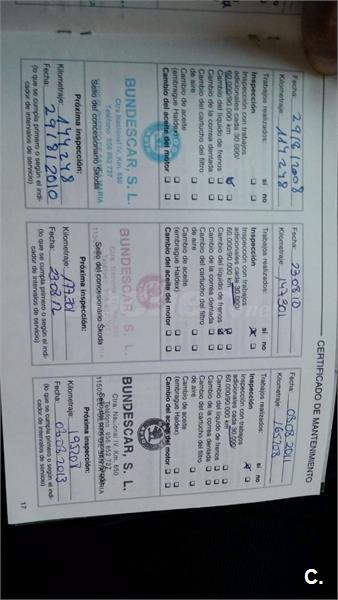 CERTIFICADO DE MANTENIMIENTO
Fecha: 29/8/2008
Kilometraje: 114248
Trabajos realizados: si no
Inspección
Inspección con trabajos
adicionales cada 30.000/
60.000/90.000 km
Cambio del líquido de frenos
Cambio de la correa dentada
Cambio del cartucho del filtro
de aire
Cambio de aceite
(embrague Haldex)
Cambio del aceite del motor
BUNDESCAR, S. L.
Ctra. Nacional IV, Km. 650
Teléfono 956 852 727
Sello del concesionario Skoda
Próxima inspección:
Kilometraje: 144248
Fecha: 29/8/2010
(lo que se cumpla primero o según el indi-
cador de intervalos de servicio)
Fecha: 23.08.10
Kilometraje: 147.301
Trabajos realizados: si no
Inspección
Inspección con trabajos
adicionales cada 30.000/
60.000/90.000 km
Cambio del líquido de frenos
Cambio de la correa dentada
Cambio del cartucho del filtro
de aire
Cambio de aceite
(embrague Haldex)
Cambio del aceite del motor
BUNDESCAR, S. L.
Sello del concesionario Skoda
Próxima inspección:
Kilometraje:
Fecha:
(lo que se cumpla primero o según el indi-
cador de intervalos de servicio)
Fecha: 03.08.2011
Kilometraje: 165708
Trabajos realizados: si no
Inspección
Inspección con trabajos
adicionales cada 30.000/
60.000/90.000 km
Cambio del líquido de frenos
Cambio de la correa dentada
Cambio del cartucho del filtro
de aire
Cambio de aceite
(embrague Haldex)
Cambio del aceite del motor
BUNDESCAR, S. L.
Ctra. Nacional IV, Km. 650
Teléfono 956 852 727
Próxima inspección:
Kilometraje: 195708
Fecha: 03.08.2013
(lo que se cumpla primero o según el indi-
cador de intervalos de servicio)
17
C.